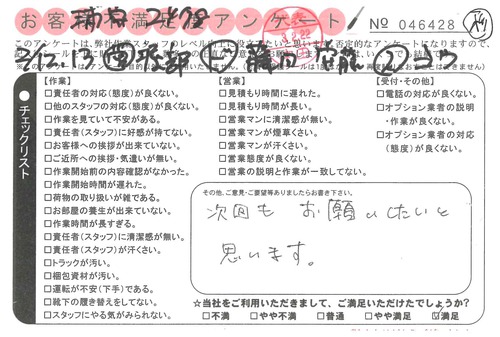 お客様満足度アンケート! No 046428
【作業】
□責任者の対応(態度)が良くない。
□他のスタッフの対応(態度)が良くない。
□作業を見ていて不安がある。
□責任者(スタッフ)に好感が持てない。
□お客様への挨拶が出来ていない。
□ご近所への挨拶・気遣いが無い。
□作業開始前の内容確認がなかった。
□作業開始時間が遅れた。
□荷物の取り扱いが雑である。
□お部屋の養生が出来ていない。
□作業時間が長すぎる。
□責任者(スタッフ)に清潔感が無い。
□責任者(スタッフ)が汗くさい。
□トラックが汚い。
□梱包資材が汚い。
□運転が不安(下手)である。
□靴下の履き替えをしてない。
□スタッフにやる気がみられない。
チェックリスト
【営業】
□見積もり時間に遅れた。
□見積もり時間が長い。
□営業マンに清潔感が無い。
□営業マンが煙草くさい。
□営業マンが汗くさい。
□営業態度が良くない。
□営業の説明と作業が一致してない。
【受付・その他】
□電話の対応が良くない。
□オプション業者の説明
・作業が良くない。
□オプション業者の対応
(態度)が良くない。
その他、ご意見・ご要望等ありましたらお書き下さい。
次回も お願いしたいと
思います。
☆当社をご利用いただきまして、ご満足いただけたでしょうか?
□不満 □やや不満 □普通 □やや満足 ☑満足